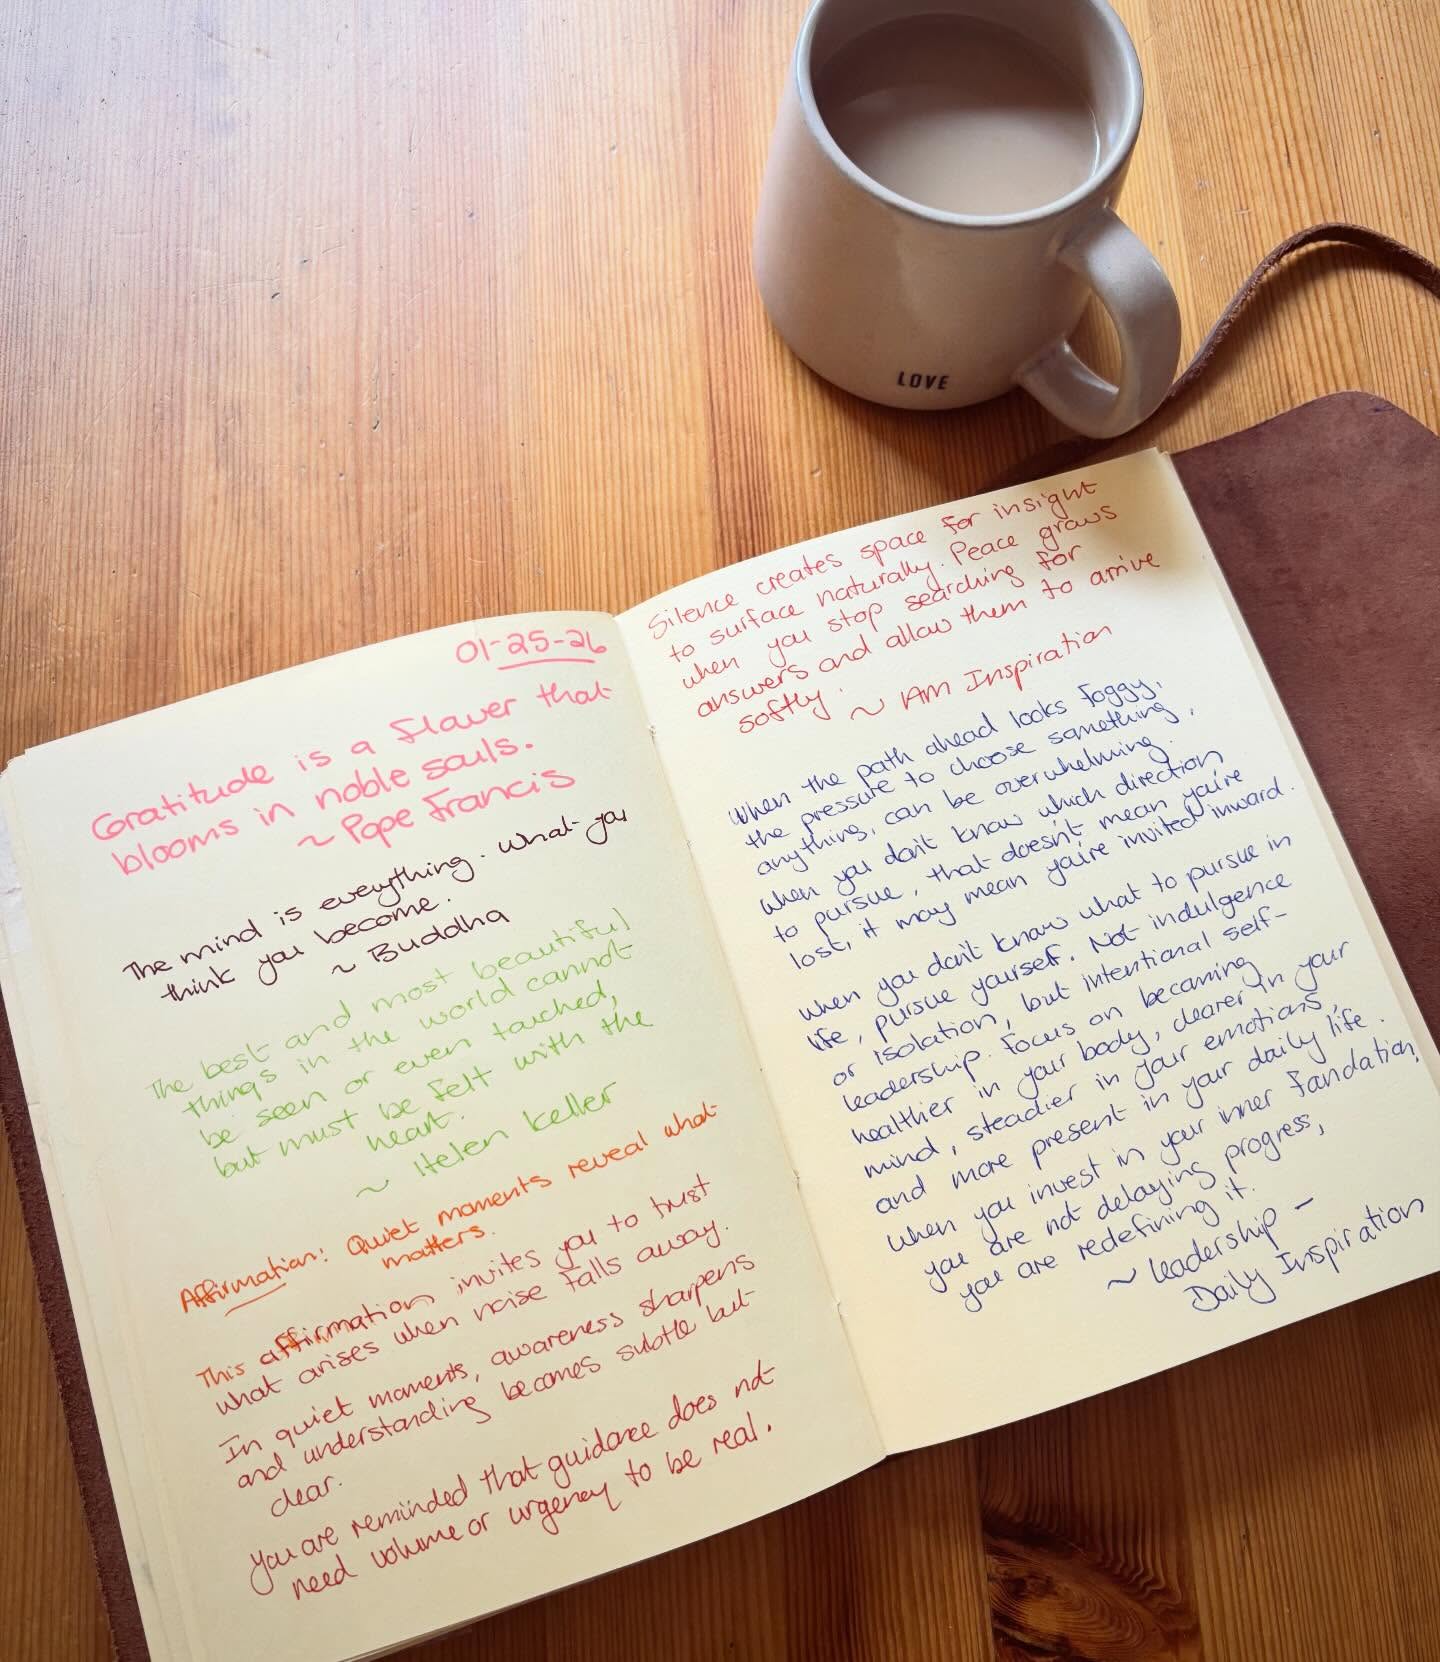 LOVE
01-25-26
Gratitude is a flower that
blooms in noble souls.
~ Pope Francis
The mind is everything. What you
think you become.
~ Buddha
The best and most beautiful
things in the world cannot
be seen or even touched,
but must be felt with the
heart.
~ Helen Keller
Affirmation: Quiet moments reveal what
matters.
This affirmation invites you to trust
what arises when noise falls away.
In quiet moments, awareness sharpens
and understanding becomes subtle but
clear.
You are reminded that guidance does not
need volume or urgency to be real.
Silence creates space for insight
to surface naturally. Peace grows
when you stop searching for
answers and allow them to arrive
softly.
~ AM Inspiration
When the path ahead looks foggy,
the pressure to choose something,
anything, can be overwhelming.
When you don't know which direction
to pursue, that doesn't mean you're
lost, it may mean you're invited inward.
When you don't know what to pursue in
life, pursue yourself. Not indulgence
or isolation, but intentional self-
leadership. Focus on becoming
healthier in your body, clearer in your
mind, steadier in your emotions,
and more present in your daily life.
When you invest in your inner foundation,
you are not delaying progress,
you are redefining it.
~ Leadership -
Daily Inspiration